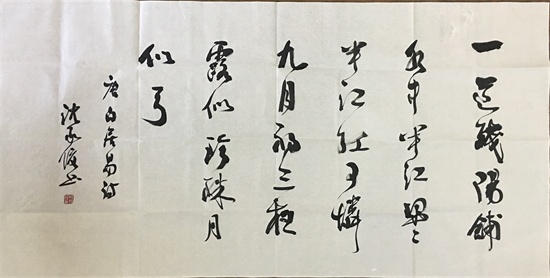 一道殘陽鋪
水中半江瑟々
半江紅可憐
九月初三夜
露似珍珠月
似弓
唐白居易詩
沈